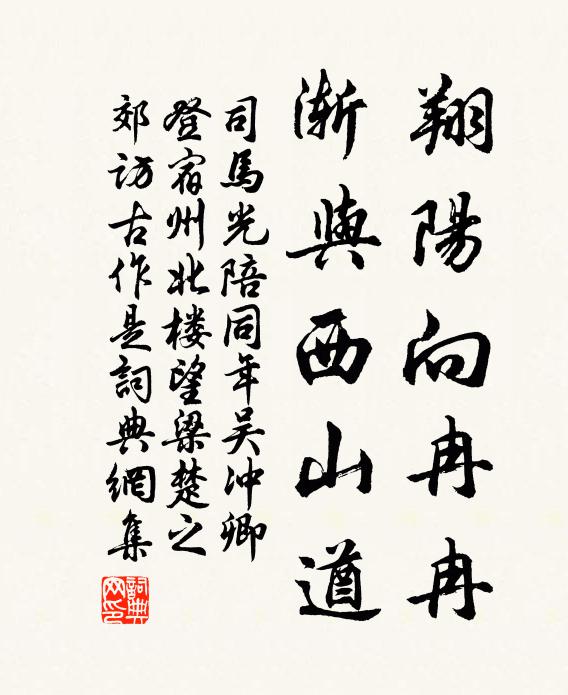 翔陽向冉冉
漸與西山遒
司馬光陪同年吴冲卿
登宿州北楼望梁楚之
郊訪古作是詞典網集
詞典
网印